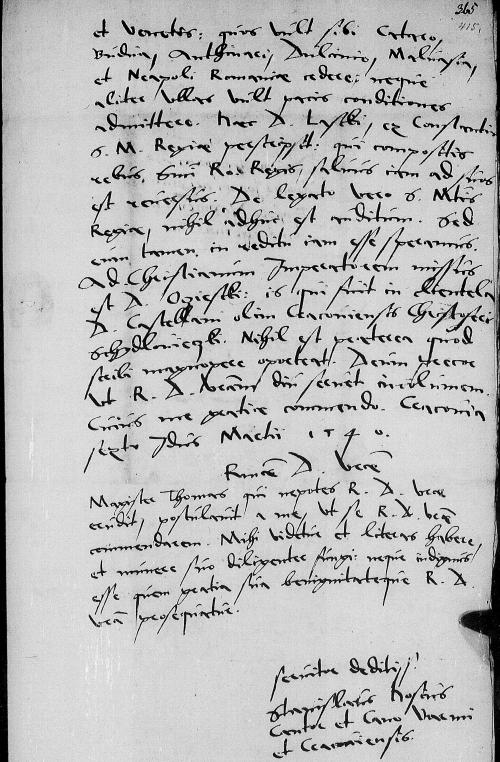 365
415
et Venetos: quos vult sibi Cataro,
Buduia, Anthiuari, Dulcinio, Maluasia,
et Neapoli Romaniae cedere: neque
aliter vllas vult pacis conditiones
admittere. Haec D. Laski, ex Constantin
S. M. Regiae perscripsit: qui compositis
rebus, sui Ro. Regis, saluus iam ad suos
est reuersus. De legato vero S. Mtis
Regiae, nihil adhuc est auditum. Sed
eum tamen in reditu iam esse speramus.
Ad Christianum Imperatorem missus
est D. Ozieski: is qui fuit in clientela
D. Castellani olim Cracouiensis Christoferi
Schydlouieczki. Nihil est praeterea quod
scribi magnopere oporteat. Deum precor
vt R. D. Vram diu seruet incolumem.
Cuius me gratiae commendo. Cracouia
sexto Idus Martii 1540.
D. Vrae
Magister Thomas qui nepotes R. D. Vrae
erudit, postulauit a me, vt se R. D. Vrae
commendarem. Mihi videtur et literas habere,
et munere suo diligenter fungi: neque indignus
esse quem gratia sua benignitateque R. D.
Vra prosequatur.
seruitor deditiss:
Stanislaus Hosius
Cantor et Cano Varmi
et Cracouiensis.